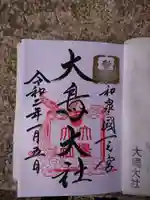 和泉國一之宮
大鳥大社
令和二年一月五日
大鳥大社